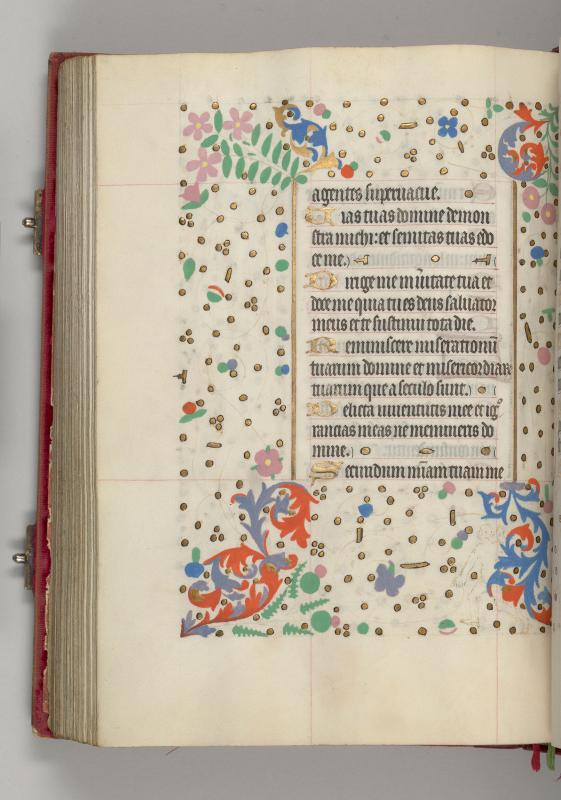 agentes supervacue.
Vias tuas domine demon
stra michi: et semitas tuas edo
ce me.
Dirige me in v̄itate tua et
doce me quia tu es deus salvator
meus et te sustinui tota die.
Reminiscere miserationū
tuarum domine et misericordiarꝝ
tuarum que a seculo sunt.
Delicta iuventutis mee et ig
rancias meas ne memineris do
mine.
Secundum m̄iam tuam me